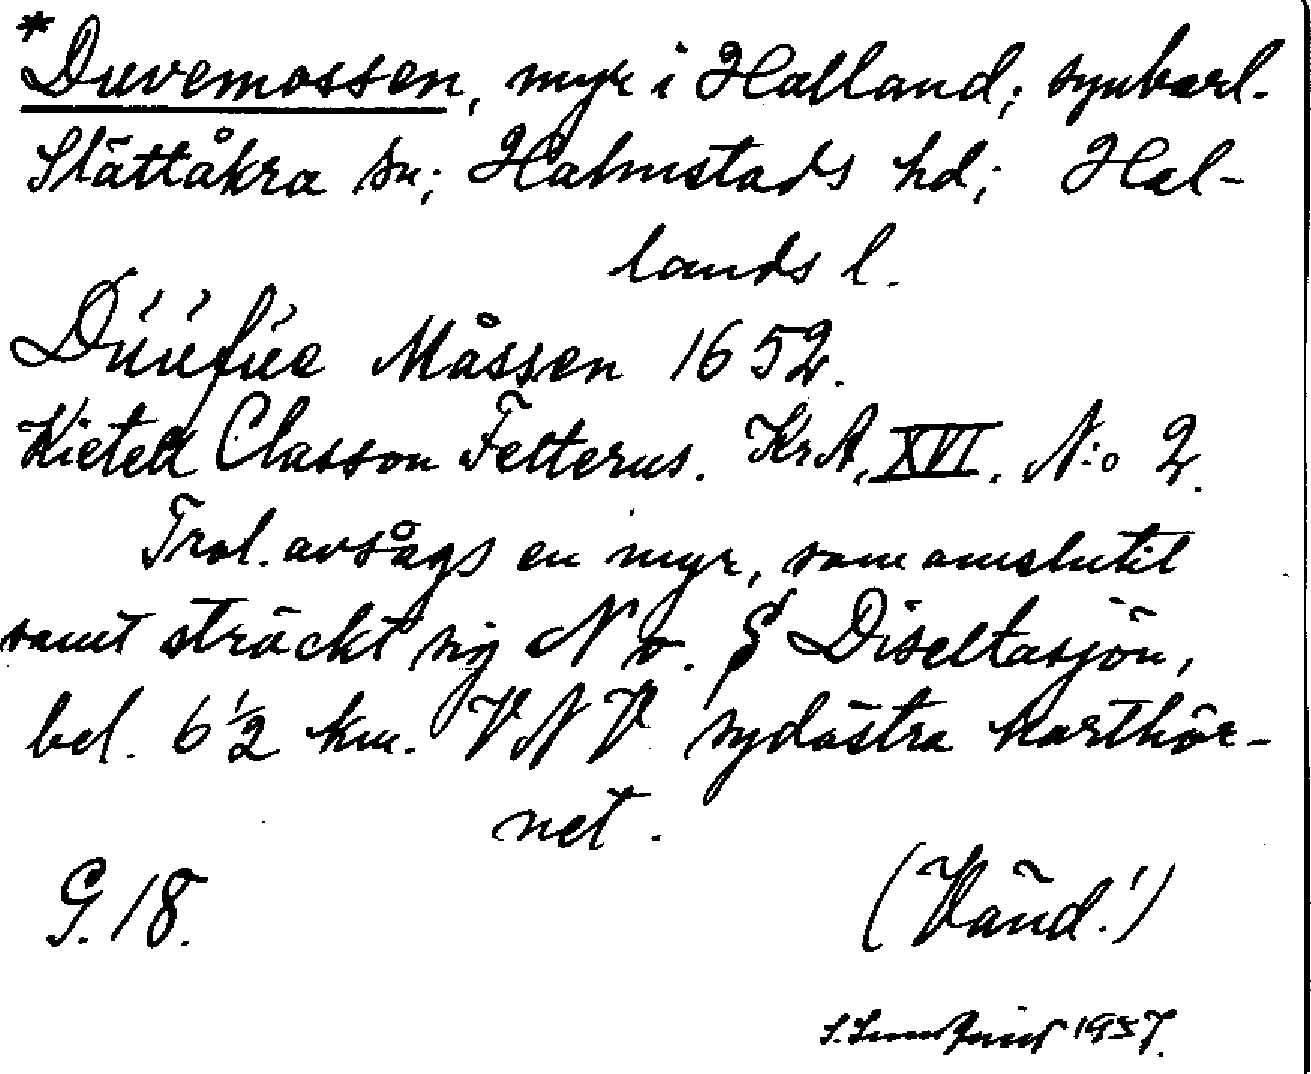 *Duvemossen, myr i Halland; synbarl.
Slättåkra sn; Halmstads hd; Hal-
lands l.
Dúúfúe Måssen 1652.
Kietell Classon Felterus. KrA, XVI. N:o 2.
Trol. avsågs en myr, som omslutit
samt sträckt sig N v. § Diseltasjön,
bel. 6 1/2 km. VNV sydöstra karthör-
net.
G. 18.
(Vänd!)
1957.